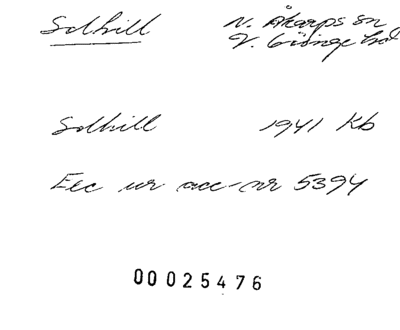 Solhill N. Åkarps sn
V. Göinge hd
Solhill 1941 Kb
Exc ur acc-nr 5394
00025476